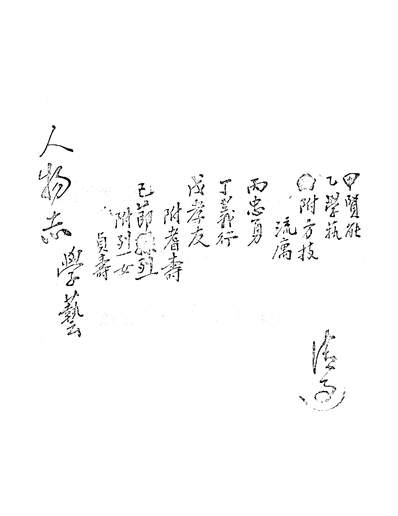 甲賢能
乙學藝
附方技
流寓
丙忠勇
丁義行
戊孝友
附耆壽
己節烈
附列女
貞壽
人物志
學藝